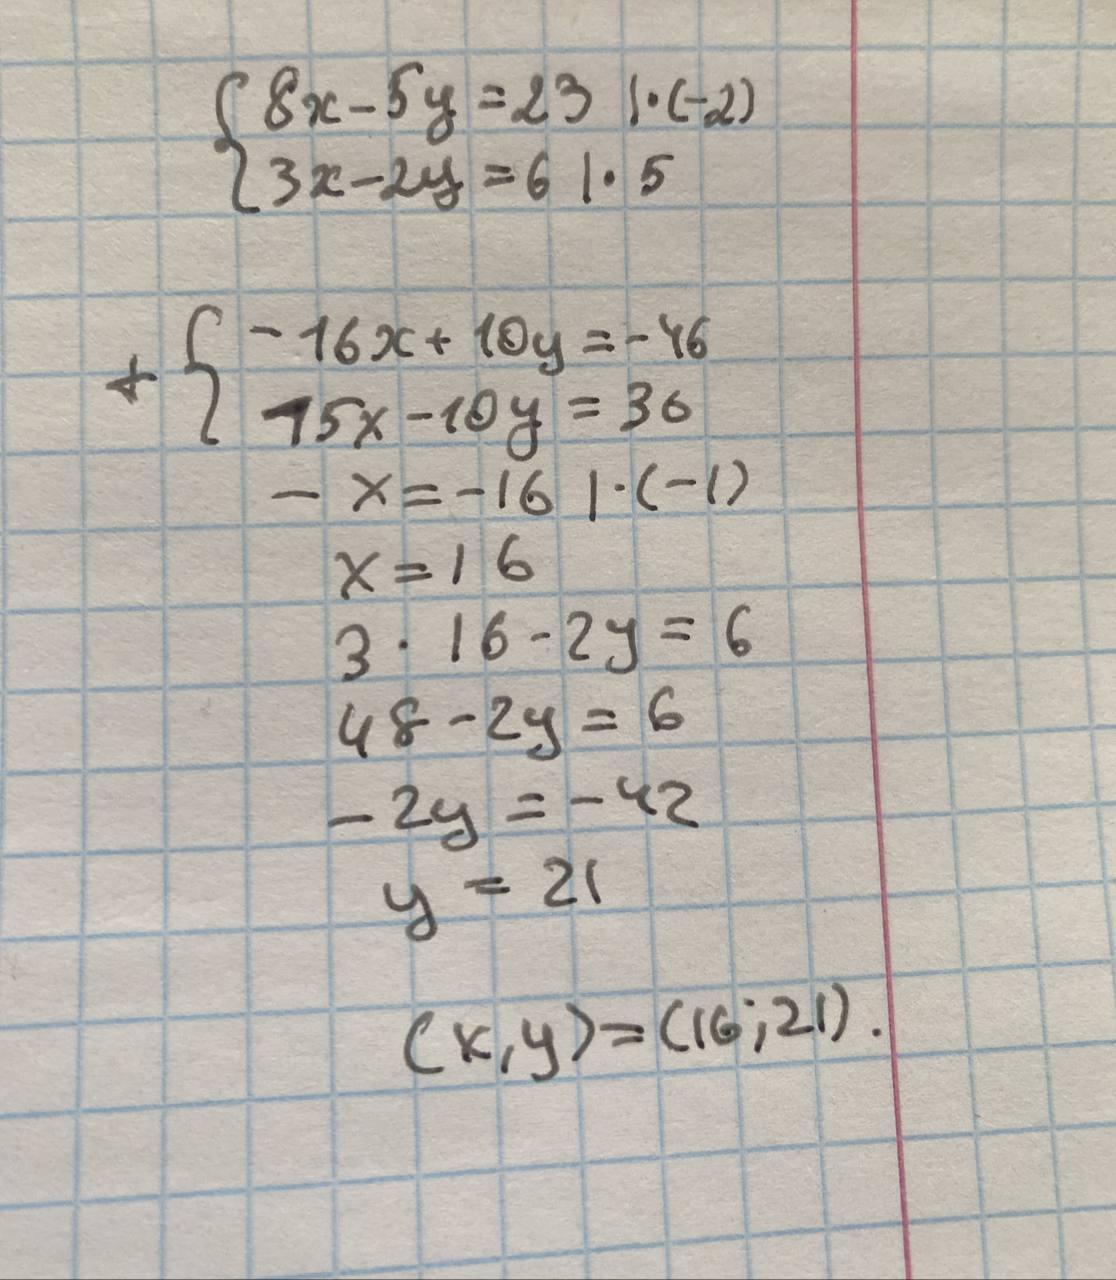 { 8x-5y=23 |·(-2)
3x-2y=6 |· 5
+ { -16x+10y=-46
15x-10y=30
- x=-16 |·(-1)
x=16
3·16-2y=6
48-2y=6
-2y=-42
y=21
(x,y)=(16;21).